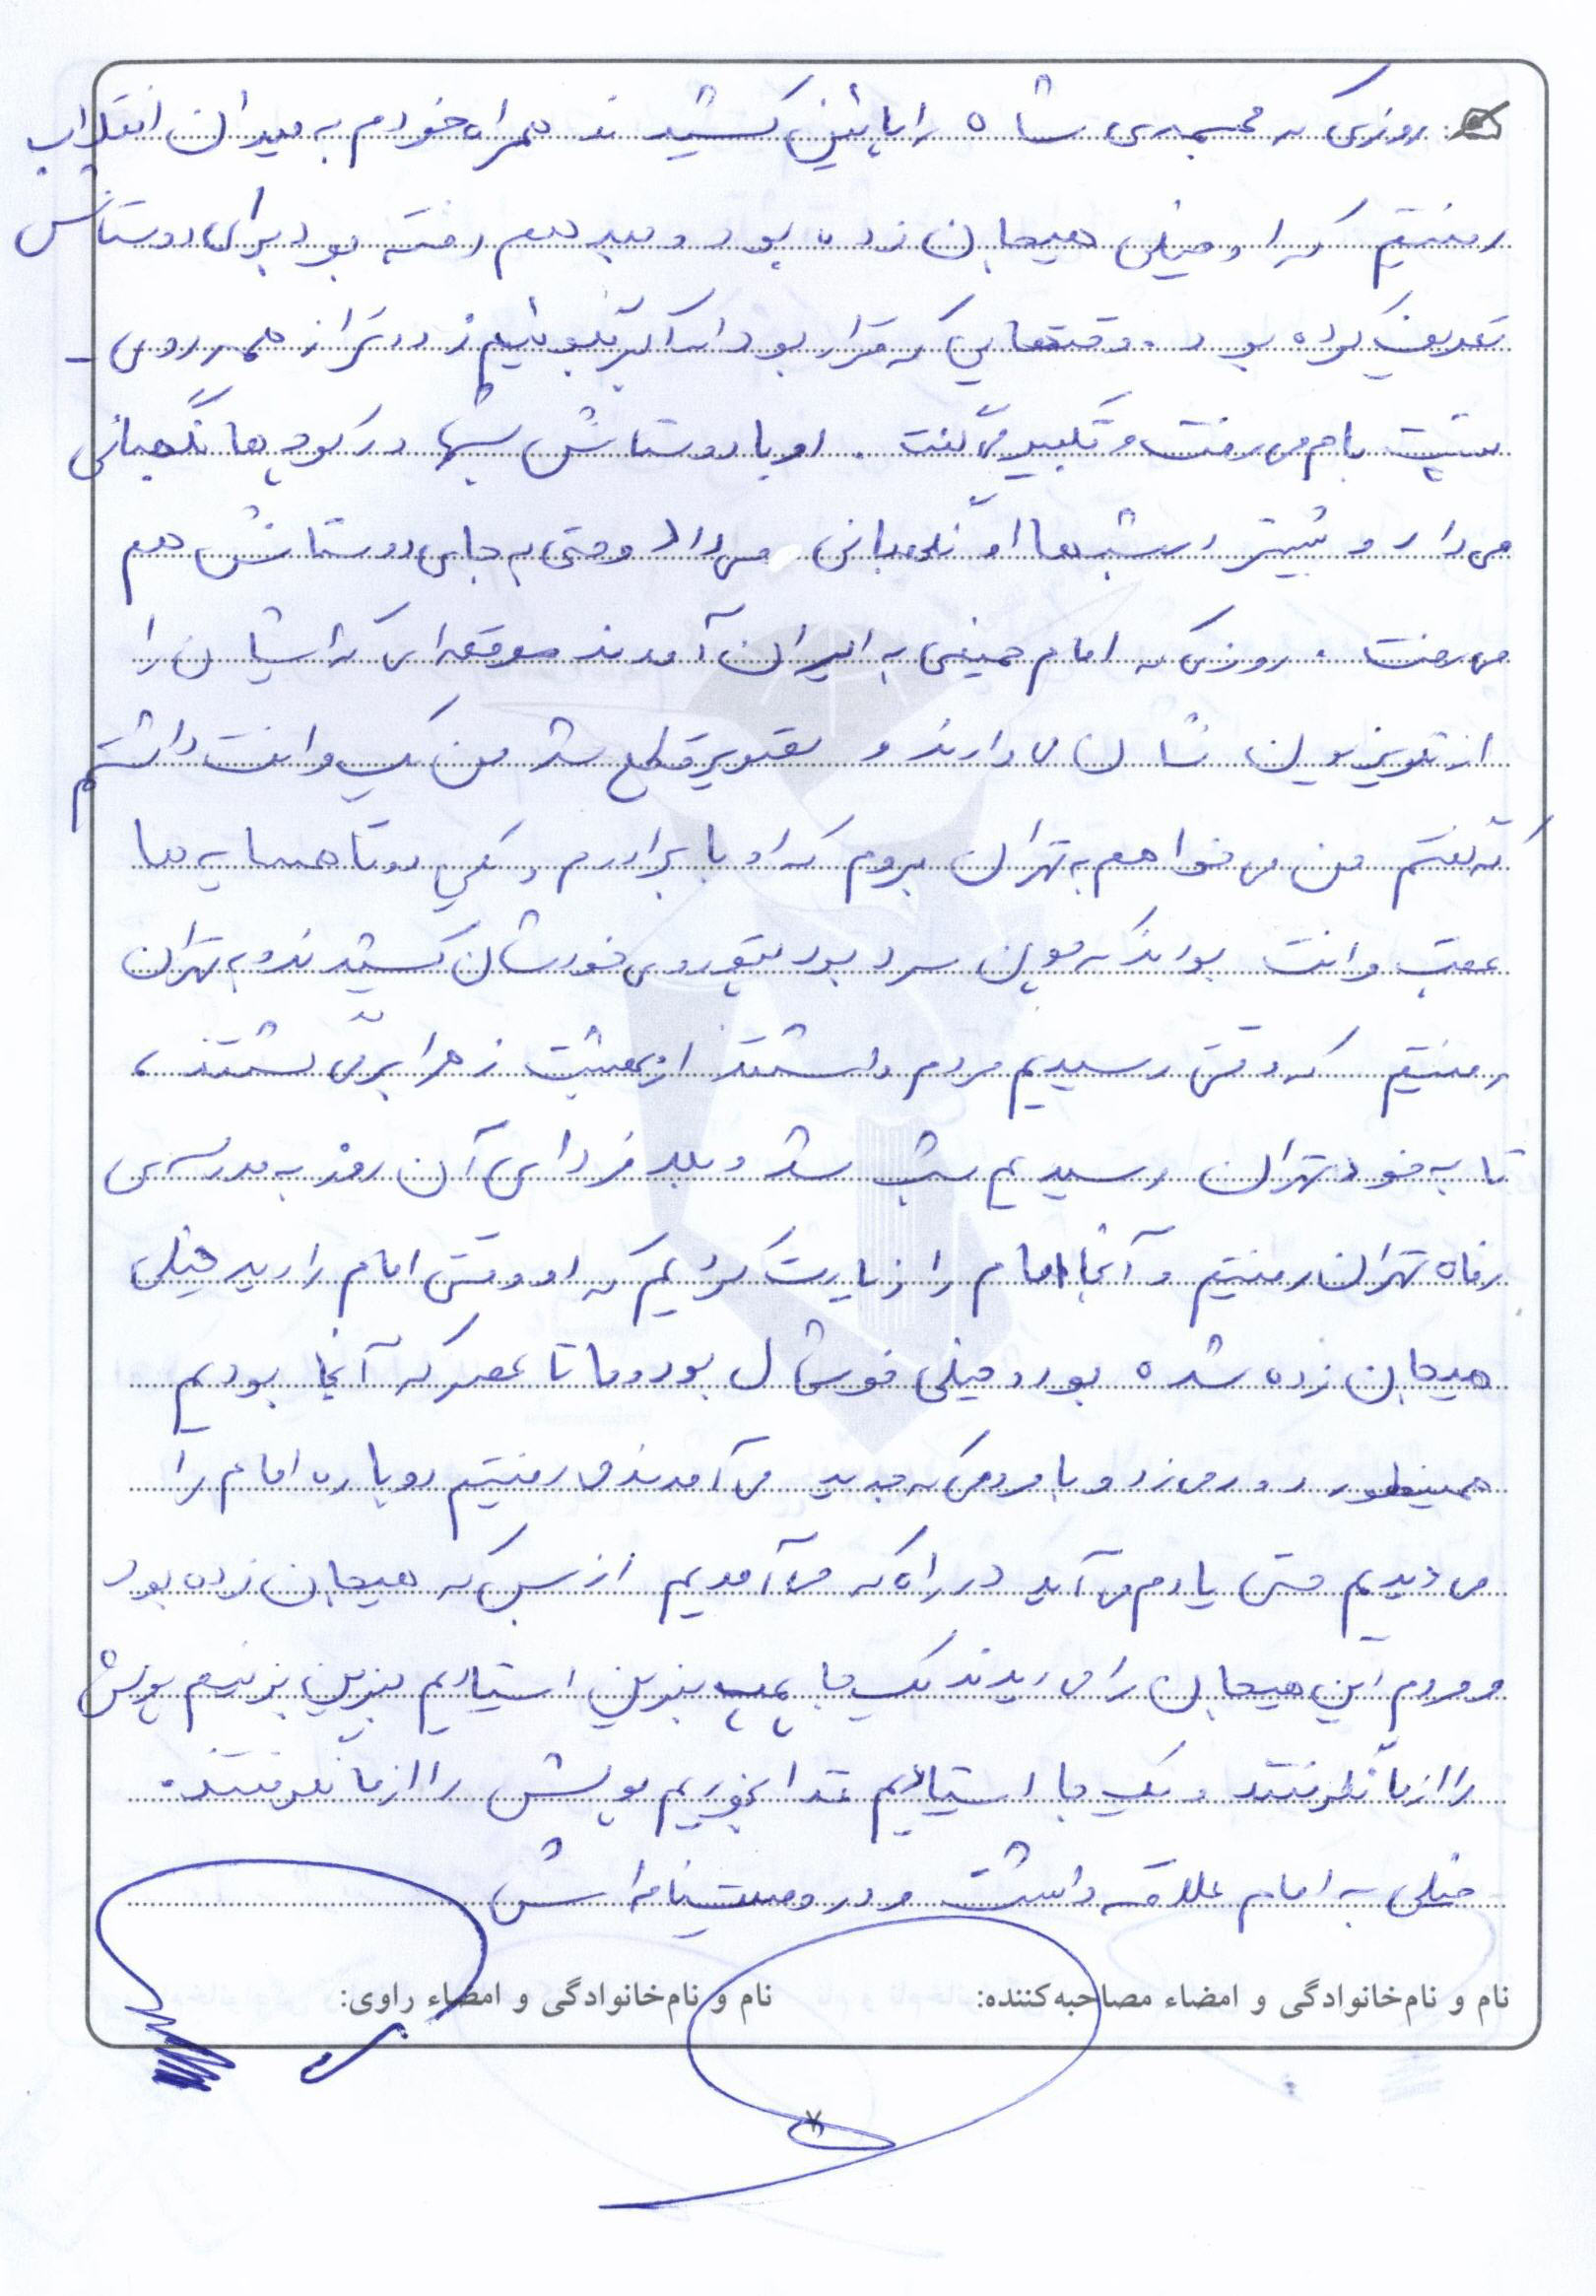 روزی که مجسمه‌ی شاه را پائین کشیدند همراه خودم به میدان انقلاب
رفتیم که او خیلی هیجان زده بود و بعد هم رفته بود برای دوستانش
تعریف کرده بود. وقتهایی که قرار بود الله اکبر بگوئیم زودتر از همه روی
پشت بام می رفت و تکبیر می گفت. او با دوستانش شبها در کوچه ها نگهبانی
می داد و بیشتر شب ها او نگهبانی می داد و حتی به جای دوستانش هم
می رفت. روزی که امام خمینی به ایران آمدند موقعه ای که ایشان را
از تلویزیون نشان می دادند و تصویر قطع شد من یک وانت داشتم
که گفتم من می خواهم به تهران بروم که او با برادرم و یکی دوتا همسایه ها
عقب وانت بودند که چون سرد بود پتو روی خودشان کشیدند و به تهران
رفتیم که وقتی رسیدیم مردم داشتند از بهشت زهرا بر می گشتند،
تا به خود تهران رسیدیم شب شد و بعد فردای آن روز به مدرسه ی
رفاه تهران رفتیم و آنجا امام را زیارت کردیم که او وقتی امام را دید خیلی
هیجان زده شده بود و خیلی خوشحال بود و ما تا عصر که آنجا بودیم
همینطور دور می زد و با مردمی که جدید می آمدند می رفتیم دوباره امام را
می دیدیم حتی یادم می آید در راه که می آمدیم از بس که هیجان زده بود
و مردم این هیجان را می دیدند یک جا پمپ بنزین ایستادیم بنزین بزنیم پولش
را از ما نگرفتند و یک جا ایستادیم غذا بخوریم پولش را از ما نگرفتند.
خیلی به امام علاقه داشت و در وصیت نامه اش
نام و نام‌خانوادگی و امضاء مصاحبه‌کننده: نام و نام‌خانوادگی و امضاء راوی:
۷